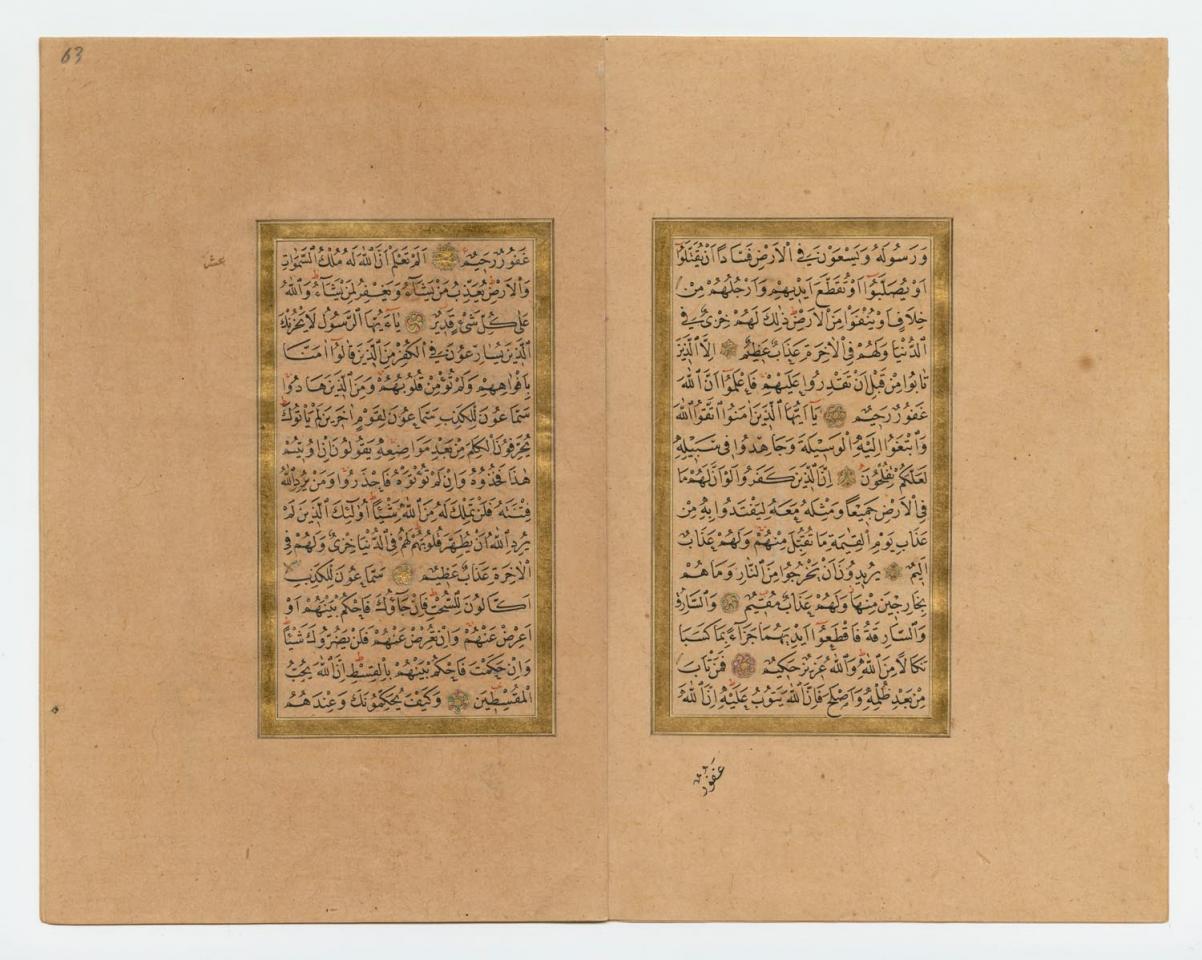 وَرَسُولَهُ وَيَسْعَوْنَ فِي الْاَرْضِ فَسَادًا اَنْ يُقَتَّلُوا
اَوْ يُصَلَّبُوا اَوْ تُقَطَّعَ اَيْدِيهِمْ وَاَرْجُلُهُمْ مِنْ
خِلَافٍ اَوْ يُنْفَوْا مِنَ الْاَرْضِ ذٰلِكَ لَهُمْ خِزْيٌ فِي
الدُّنْيَا وَلَهُمْ فِي الْاٰخِرَةِ عَذَابٌ عَظِيمٌ اِلَّا الَّذِينَ
تَابُوا مِنْ قَبْلِ اَنْ تَقْدِرُوا عَلَيْهِمْ فَاعْلَمُوا اَنَّ اللّٰهَ
غَفُورٌ رَحِيمٌ يَا اَيُّهَا الَّذِينَ اٰمَنُوا اتَّقُوا اللّٰهَ
وَابْتَغُوا اِلَيْهِ الْوَسِيلَةَ وَجَاهِدُوا فِي سَبِيلِهِ
لَعَلَّكُمْ تُفْلِحُونَ اِنَّ الَّذِينَ كَفَرُوا لَوْ اَنَّ لَهُمْ مَا
فِي الْاَرْضِ جَمِيعًا وَمِثْلَهُ مَعَهُ لِيَفْتَدُوا بِهِ مِنْ
عَذَابِ يَوْمِ الْقِيٰمَةِ مَا تُقُبِّلَ مِنْهُمْ وَلَهُمْ عَذَابٌ
اَلِيمٌ يُرِيدُونَ اَنْ يَخْرُجُوا مِنَ النَّارِ وَمَا هُمْ
بِخَارِجِينَ مِنْهَا وَلَهُمْ عَذَابٌ مُقِيمٌ وَالسَّارِقُ
وَالسَّارِقَةُ فَاقْطَعُوا اَيْدِيَهُمَا جَزَاءً بِمَا كَسَبَا
نَكَالًا مِنَ اللّٰهِ وَاللّٰهُ عَزِيزٌ حَكِيمٌ فَمَنْ تَابَ
مِنْ بَعْدِ ظُلْمِهِ وَاَصْلَحَ فَاِنَّ اللّٰهَ يَتُوبُ عَلَيْهِ اِنَّ اللّٰهَ
غفور
63
عشر
غَفُورٌ رَحِيمٌ اَلَمْ تَعْلَمْ اَنَّ اللّٰهَ لَهُ مُلْكُ السَّمٰوَاتِ
وَالْاَرْضِ يُعَذِّبُ مَنْ يَشَاءُ وَيَغْفِرُ لِمَنْ يَشَاءُ وَاللّٰهُ
عَلٰى كُلِّ شَيْءٍ قَدِيرٌ يَا اَيُّهَا الرَّسُولُ لَا يَحْزُنْكَ
الَّذِينَ يُسَارِعُونَ فِي الْكُفْرِ مِنَ الَّذِينَ قَالُوا اٰمَنَّا
بِاَفْوَاهِهِمْ وَلَمْ تُؤْمِنْ قُلُوبُهُمْ وَمِنَ الَّذِينَ هَادُوا
سَمَّاعُونَ لِلْكَذِبِ سَمَّاعُونَ لِقَوْمٍ اٰخَرِينَ لَمْ يَأْتُوكَ
يُحَرِّفُونَ الْكَلِمَ مِنْ بَعْدِ مَوَاضِعِهِ يَقُولُونَ اِنْ اُوتِيتُمْ
هٰذَا فَخُذُوهُ وَاِنْ لَمْ تُؤْتَوْهُ فَاحْذَرُوا وَمَنْ يُرِدِ اللّٰهُ
فِتْنَتَهُ فَلَنْ تَمْلِكَ لَهُ مِنَ اللّٰهِ شَيْئًا اُولٰئِكَ الَّذِينَ لَمْ
يُرِدِ اللّٰهُ اَنْ يُطَهِّرَ قُلُوبَهُمْ لَهُمْ فِي الدُّنْيَا خِزْيٌ وَلَهُمْ فِي
الْاٰخِرَةِ عَذَابٌ عَظِيمٌ سَمَّاعُونَ لِلْكَذِبِ
اَكَّالُونَ لِلسُّحْتِ فَاِنْ جَاؤُكَ فَاحْكُمْ بَيْنَهُمْ اَوْ
اَعْرِضْ عَنْهُمْ وَاِنْ تُعْرِضْ عَنْهُمْ فَلَنْ يَضُرُّوكَ شَيْئًا
وَاِنْ حَكَمْتَ فَاحْكُمْ بَيْنَهُمْ بِالْقِسْطِ اِنَّ اللّٰهَ يُحِبُّ
الْمُقْسِطِينَ وَكَيْفَ يُحَكِّمُونَكَ وَعِنْدَهُمُ